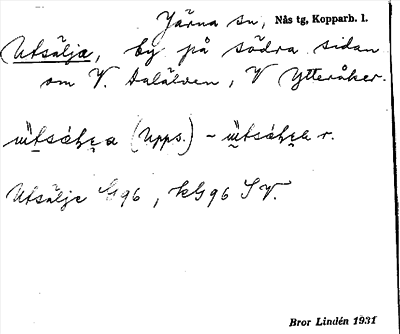 Järna sn, Nås tg, Kopparb. l.
Utsälje, by på södra sidan
om V. Dalälven, V Ytteråker.
(Upps.) -
Utsälje G96, kG96 SV.
Bror Lindén 1931